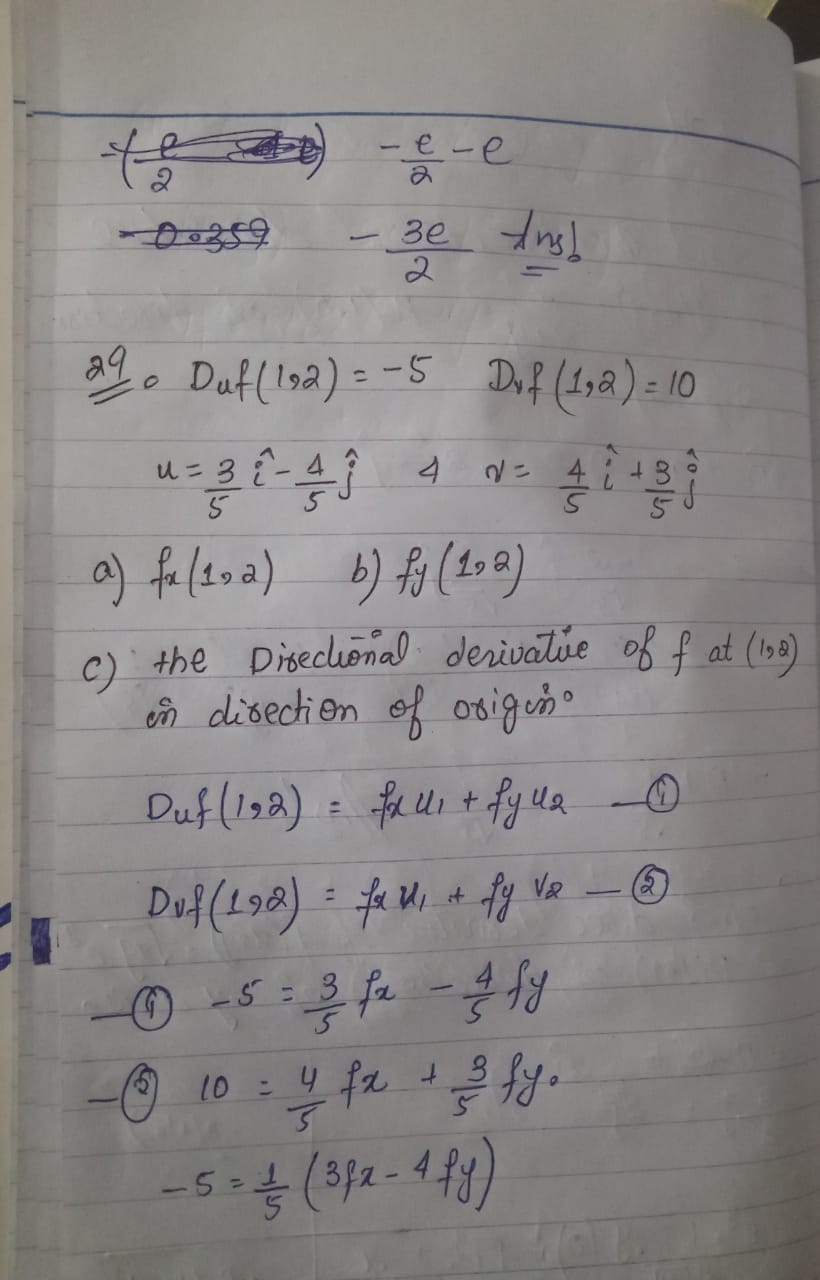 -e/2 -e
-3e/2 Ans
29. Duf(1,2) = -5 Dvf(1,2) = 10
u = 3/5 î - 4/5 ĵ & v = 4/5 î + 3/5 ĵ
a) fx(1,2) b) fy(1,2)
c) the Directional derivative of f at (1,2)
in direction of origin.
Duf(1,2) = fx u1 + fy u2 — ①
Dvf(1,2) = fx v1 + fy v2 — ②
—① -5 = 3/5 fx - 4/5 fy
—② 10 = 4/5 fx + 3/5 fy.
-5 = 1/5 (3fx - 4fy)